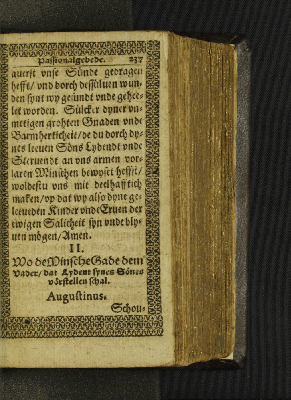 Passionalgebede. 237
auerst vnse Sünde gedragen
hefft/ vnd dorch dessüluen wun-
den synt wy gesundt vnde gehee-
let worden. Sülcker dyner vn-
metigen grohten Gnaden vnde
Barmherticheit/ de du dorch dy-
nes leeuen Söns Lydendt vnde
Steruendt an vns armen vor-
laren Minschen bewyset heffst/
woldestu vns mit deelhafftich
maken/ vp dat wy also dyne ge-
leeueden Kinder vnde Eruen der
ewigen Salicheit syn vnde bly-
uen mögen/ Amen.
II.
Wo de Minsche Gade dem
Vader/ dat Lydent synes Sönes
vörstellen schal.
Augustinus.
Schou-